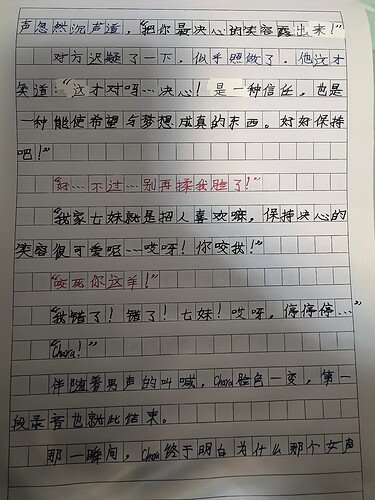 声忽然沉声道，“把你最决心的笑容露出来！”
对方迟疑了一下，似乎照做了。他这才
笑道：“这才对吗…决心！是一种信任，也是
一种能使希望与梦想成真的东西。好好保持
吧！”
“好…不过…别再揉我脸了！”
“我家七妹就是招人喜欢嘛，保持决心的
笑容很可爱呢…哎呀！你咬我！”
“咬死你这羊！”
“我错了！错了！七妹！哎呀，停停停…”
“Chara！”
伴随着男声的叫喊，Chara脸色一变，第一
段录音也就此结束。
那一瞬间，Chara终于明白为什么那个女声